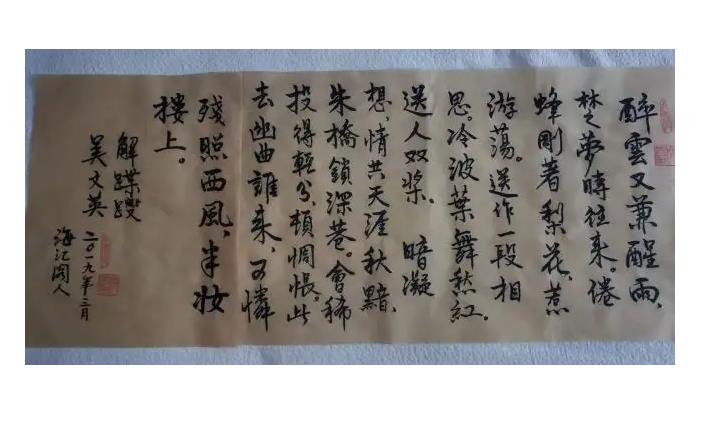 醉雲又兼醒雨、
楚夢時往来。倦
蜂剛著梨花、惹
游蕩。送作一段相
思。冷波葉舞愁紅、
送人双桨。 暗凝
想、情共天涯秋黯、
朱橋鎖深巷。會稀
投得輕分、頓惆悵。此
去幽曲誰来、可憐
殘照西風、半妆
樓上。
解蹀躞
吴文英 二〇一九年三月
海江閑人